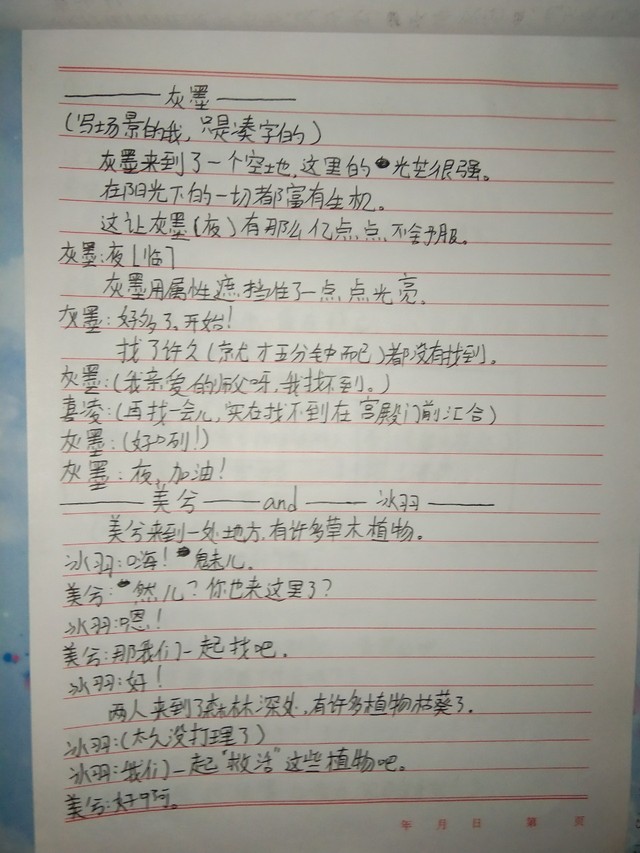 ——— 灰墨 ———
(写场景的我，只是凑字的)
灰墨来到了一个空地，这里的光芒很强。
在阳光下的一切都富有生机。
这让灰墨(夜)有那么亿点点不舒服。
灰墨:夜[临]
灰墨用属性遮挡住了一点点光亮。
灰墨:好多了。开始!
找了许久(就才五分钟而已)都没有找到。
灰墨:(我亲爱的师父呀，我找不到。)
喜凌:(再找一会儿，实在找不到在宫殿门前汇合)
灰墨:(好咧!)
灰墨:夜，加油!
——— 美兮 —— and —— 冰羽 ———
美兮来到一处地方，有许多草木植物。
冰羽:嗨! 魅儿。
美兮: 然儿?你也来这里了?
冰羽:嗯!
美兮:那我们一起找吧。
冰羽:好!
两人来到了森林深处，有许多植物枯葵了。
冰羽:(太久没打理了)
冰羽:我们一起"救活"这些植物吧。
美兮:好啊。
年 月 日 第 页